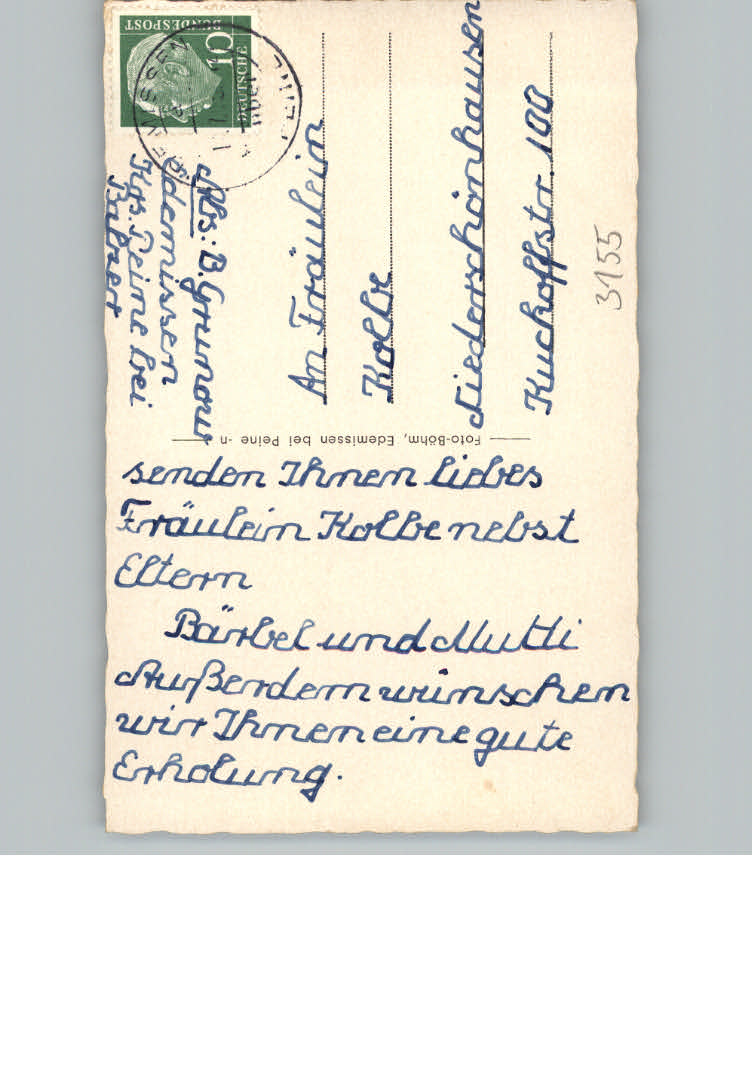 DEUTSCHE
BUNDESPOST
10
EDEMISSEN
über
PEINE
Abs: B. Grunow
Edemissen
Krs. Peine bei
An Fräulein
Kolbe
Niederschönhausen
Kuckhoffstr. 100
3155
Foto-Böhm, Edemissen bei Peine -n
senden Ihnen liebes
Fräulein Kolbe nebst
Eltern
Bärbel und Mutti
Außerdem wünschen
wir Ihnen eine gute
Erholung.